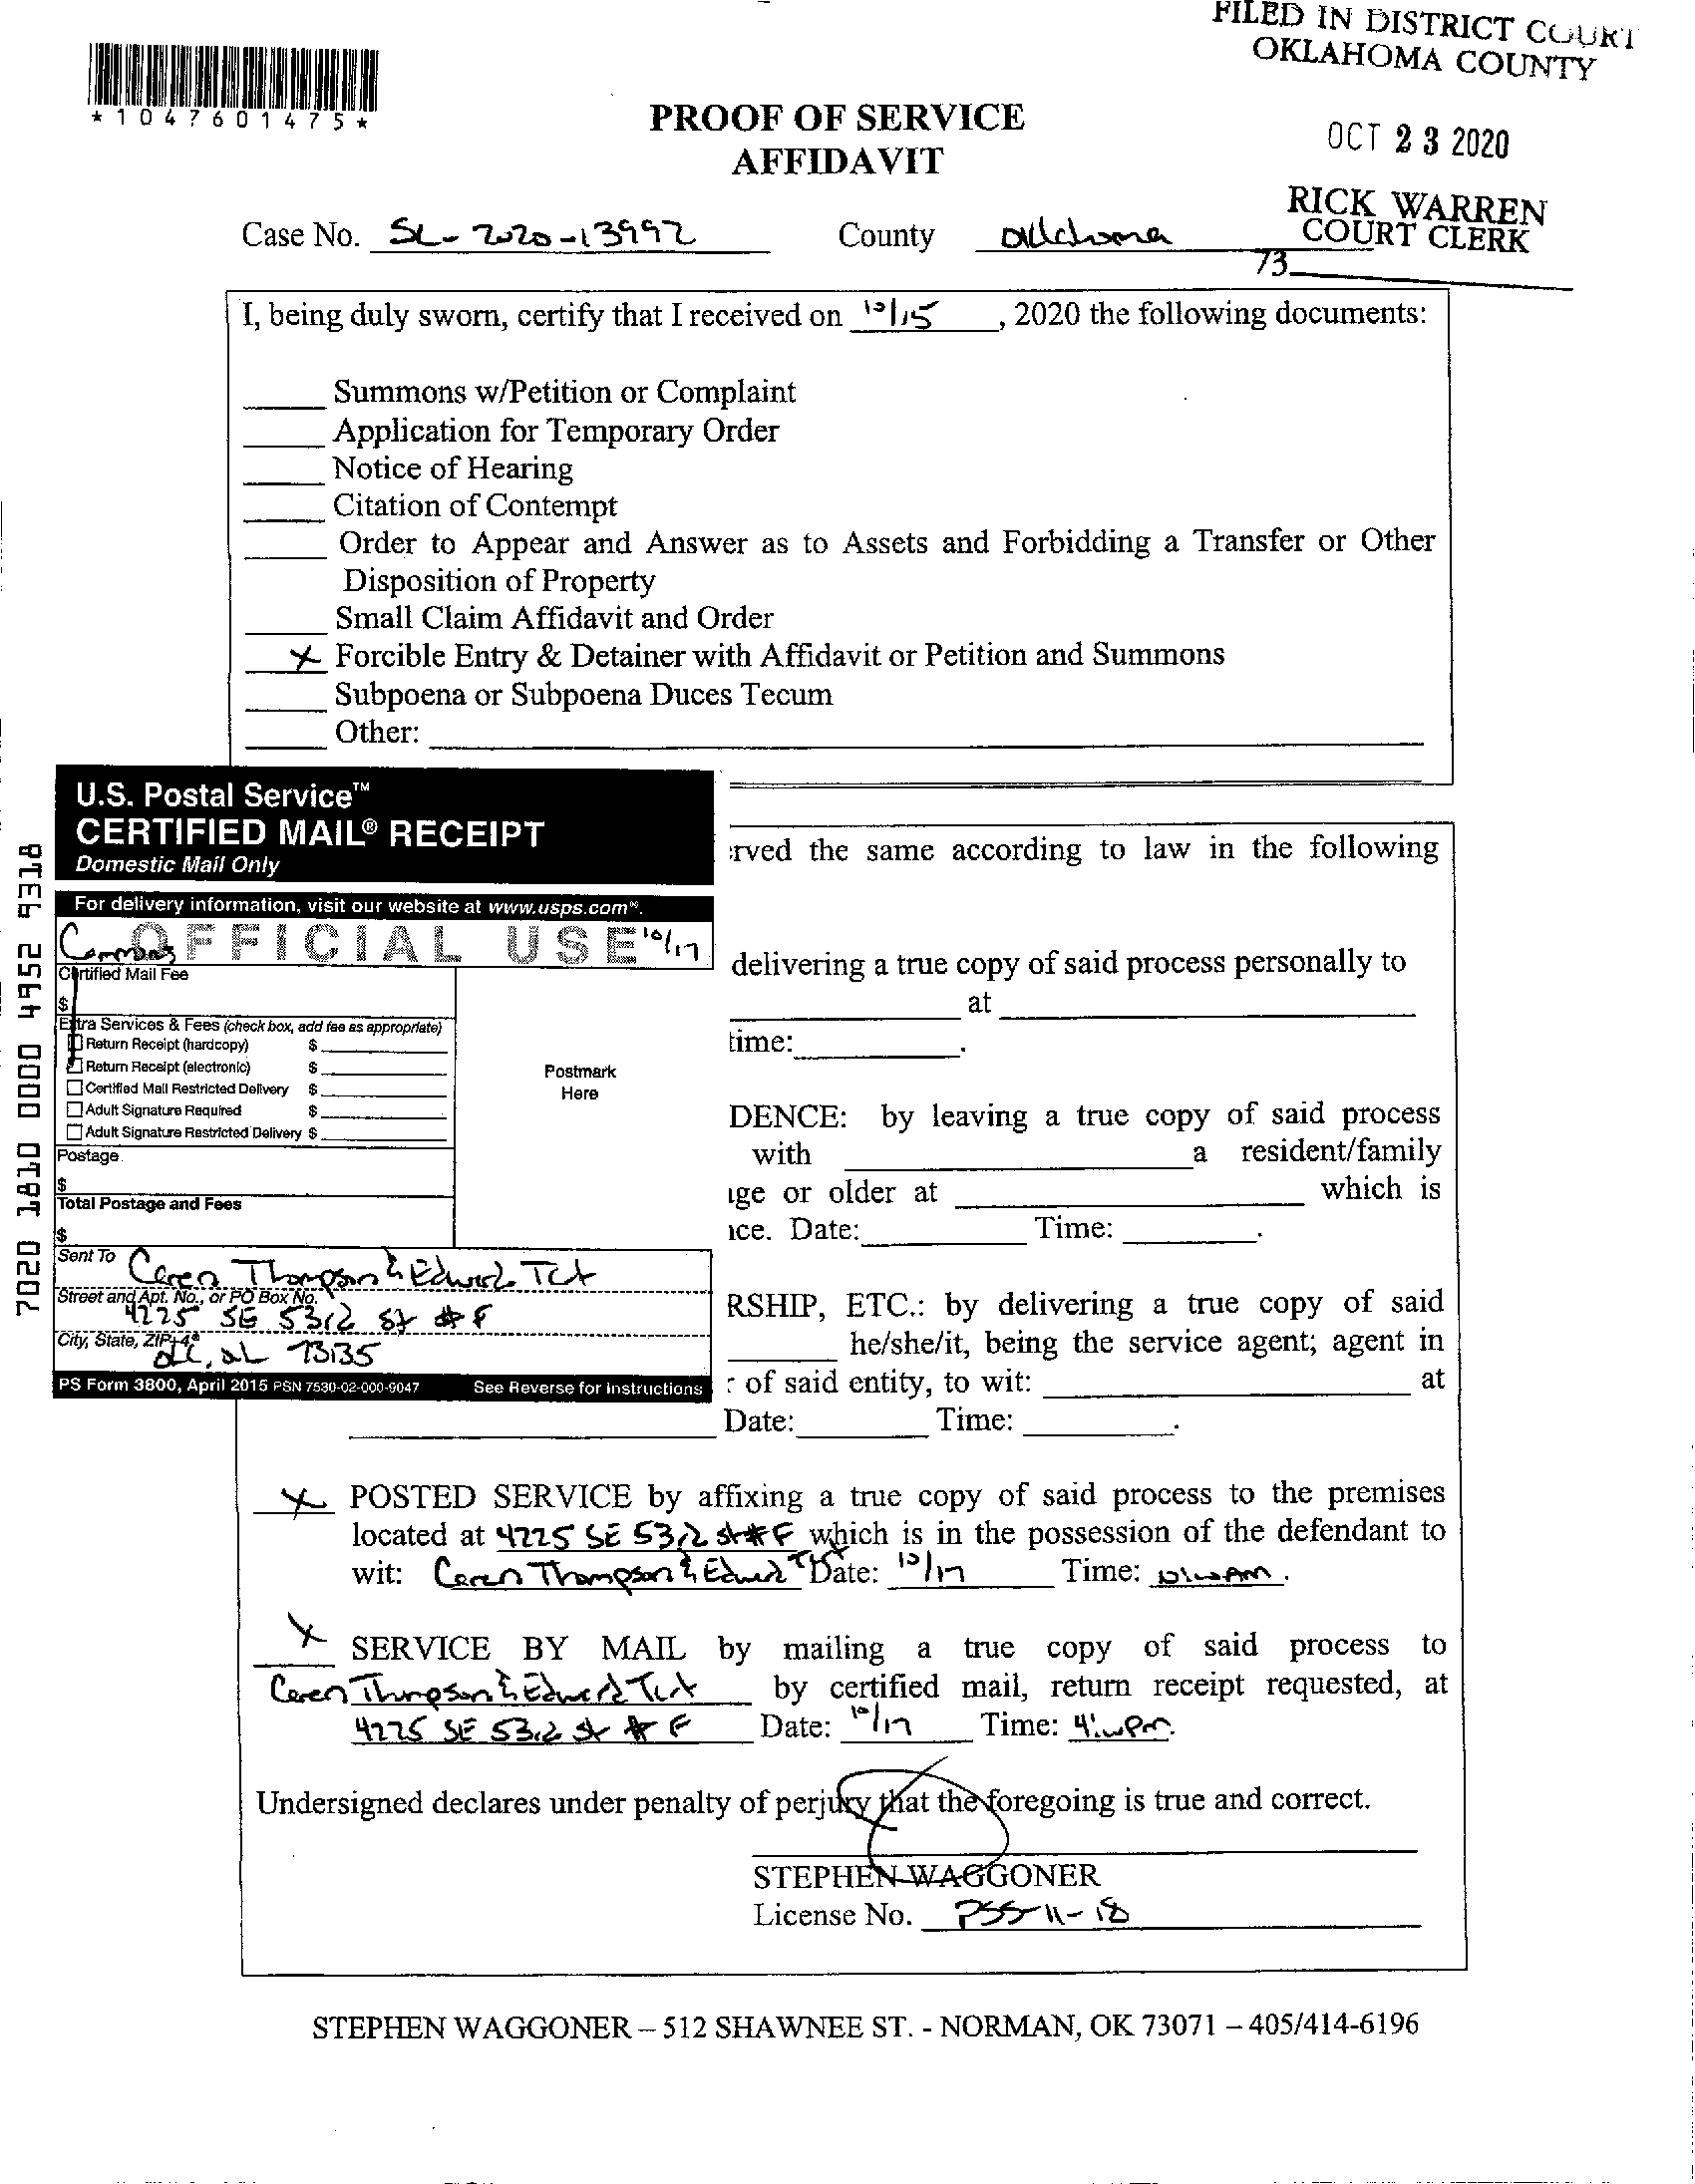 FILED IN DISTRICT COURT
OKLAHOMA COUNTY
*1047601475*
PROOF OF SERVICE
AFFIDAVIT
OCT 23 2020
RICK WARREN
COURT CLERK
73
Case No. SC-2020-13992 County Oklahoma
I, being duly sworn, certify that I received on 10/15, 2020 the following documents:
Summons w/Petition or Complaint
Application for Temporary Order
Notice of Hearing
Citation of Contempt
Order to Appear and Answer as to Assets and Forbidding a Transfer or Other
Disposition of Property
Small Claim Affidavit and Order
X Forcible Entry & Detainer with Affidavit or Petition and Summons
Subpoena or Subpoena Duces Tecum
Other:
U.S. Postal Service™
CERTIFIED MAIL® RECEIPT
Domestic Mail Only
For delivery information, visit our website at www.usps.com®.
OFFICIAL USE 10/17
Certified Mail Fee
$
Extra Services & Fees (check box, add fee as appropriate)
Return Receipt (hardcopy) $
Return Receipt (electronic) $
Certified Mail Restricted Delivery $
Adult Signature Required $
Adult Signature Restricted Delivery $
Postmark
Here
Postage
$
Total Postage and Fees
$
Sent To Caren Thompson & Edward
Street and Apt. No., or PO Box No. 4225 SE 53rd St # F
City, State, ZIP+4® OKC, OK 73135
PS Form 3800, April 2015 PSN 7530-02-000-9047 See Reverse for Instructions
7020 1810 0000 4952 9318
rved the same according to law in the following
delivering a true copy of said process personally to
at
time: .
DENCE: by leaving a true copy of said process
with a resident/family
ge or older at which is
ce. Date: Time: .
RSHIP, ETC.: by delivering a true copy of said
he/she/it, being the service agent; agent in
of said entity, to wit: at
Date: Time: .
X POSTED SERVICE by affixing a true copy of said process to the premises
located at 4225 SE 53rd St # F which is in the possession of the defendant to
wit: Caren Thompson & Edward Date: 10/17 Time: .
X SERVICE BY MAIL by mailing a true copy of said process to
Caren Thompson & Edward by certified mail, return receipt requested, at
4225 SE 53rd St # F Date: 10/17 Time: 4:00 PM.
Undersigned declares under penalty of perjury that the foregoing is true and correct.
STEPHEN WAGGONER
License No. PSS-11-18
STEPHEN WAGGONER – 512 SHAWNEE ST. - NORMAN, OK 73071 – 405/414-6196